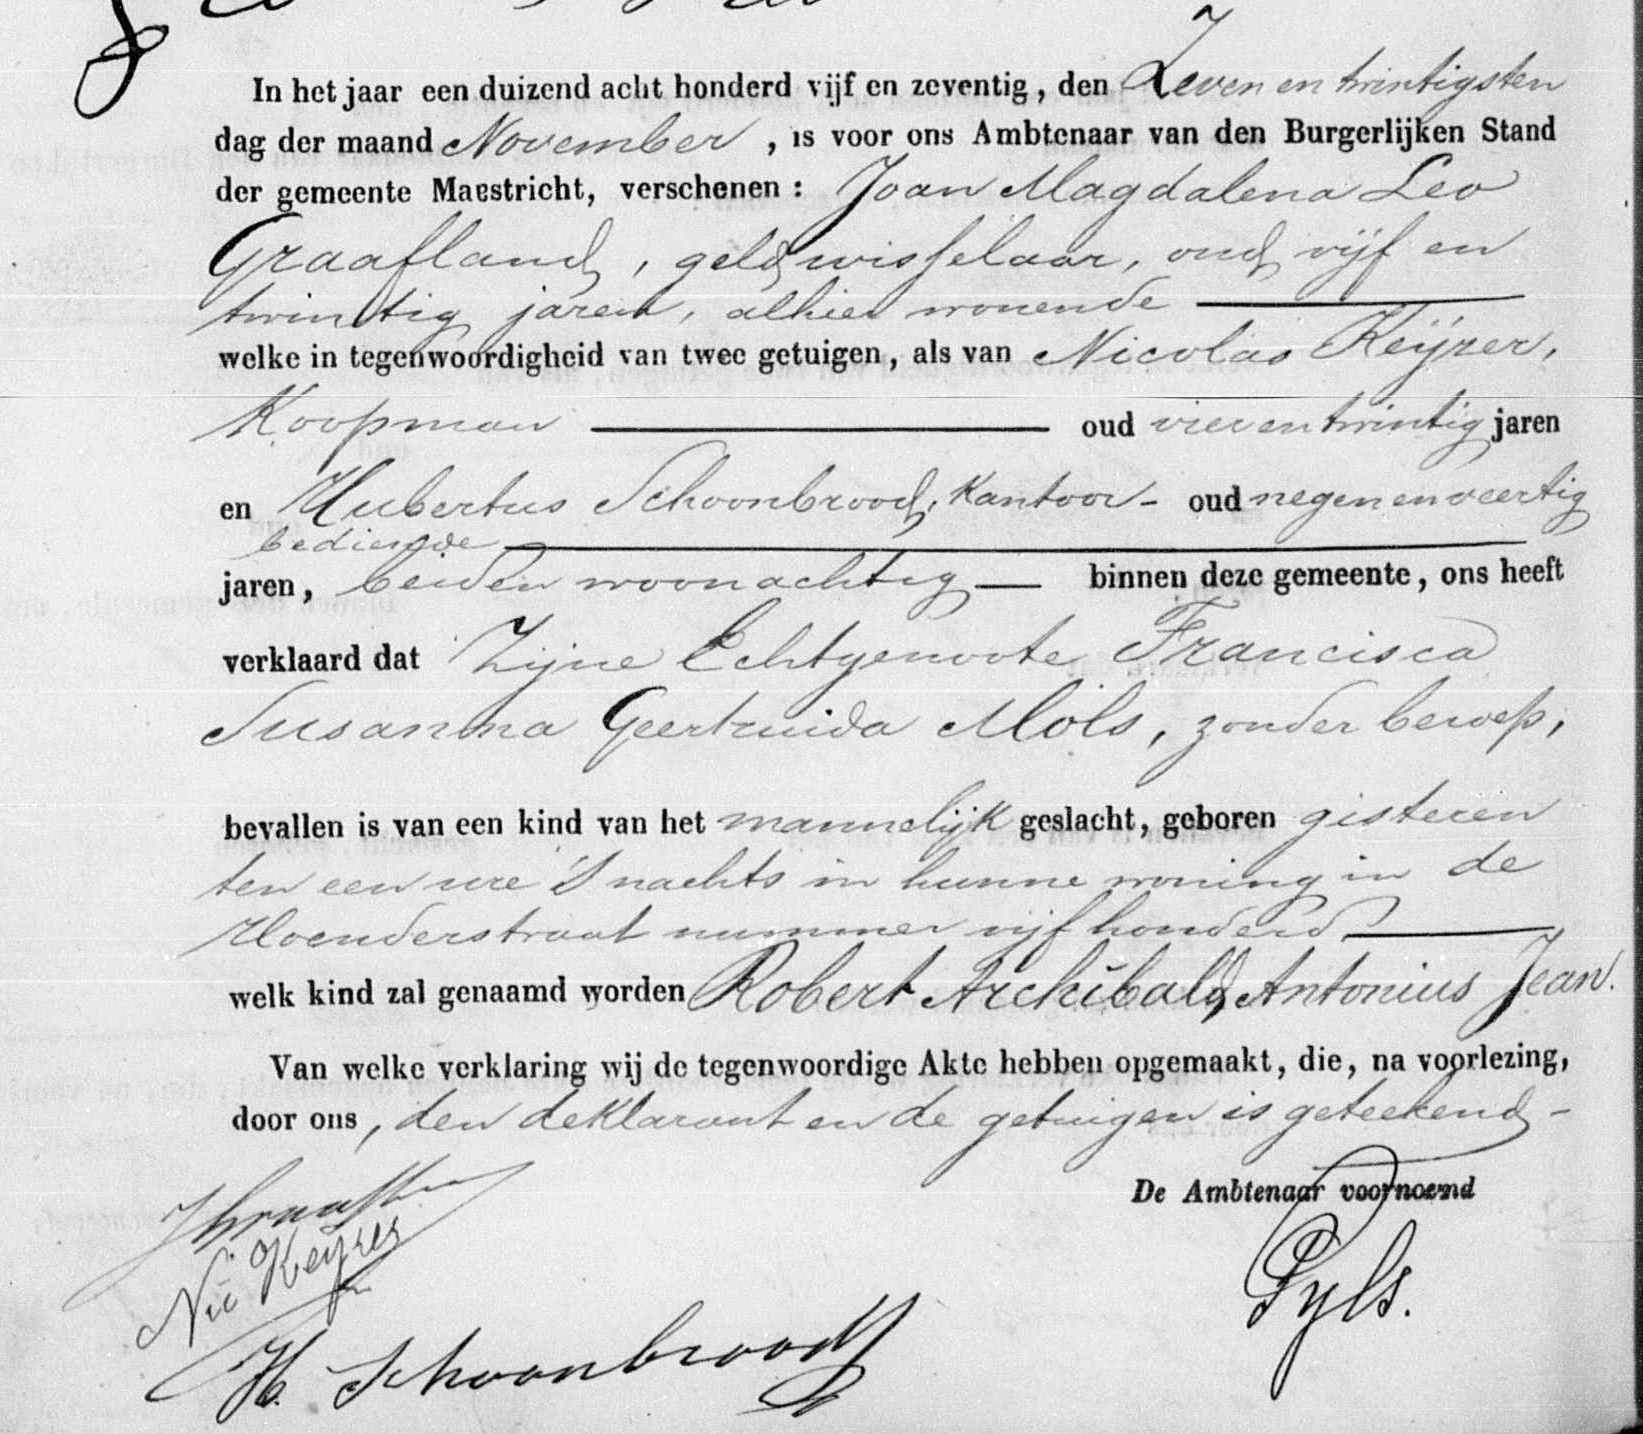 In het jaar een duizend acht honderd vijf en zeventig, den Zeven en twintigsten
dag der maand November, is voor ons Ambtenaar van den Burgerlijken Stand
der gemeente Maestricht, verschenen: Joan Magdalena Leo
Graafland, geldwisselaar, oud vijf en
twintig jaren, alhier wonende
welke in tegenwoordigheid van twee getuigen, als van Nicolas Keÿzer,
Koopman oud vier en twintig jaren
en Hubertus Schoonbrood, Kantoor- oud negen en veertig
bediende
jaren, beiden woonachtig binnen deze gemeente, ons heeft
verklaard dat Zijne Echtgenoote Francisca
Susanna Geertruida Mols, zonder beroep,
bevallen is van een kind van het mannelijk geslacht, geboren gisteren
ten een ure 's nachts in hunne woning in de
Hoenderstraat nummer vijfhonderd
welk kind zal genaamd worden Robert Archibald, Antonius Jean.
Van welke verklaring wij de tegenwoordige Akte hebben opgemaakt, die, na voorlezing,
door ons, den deklarant en de getuigen is geteekend -
De Ambtenaar voornoemd
Nic Keÿzer
Pyls.
H. Schoonbrood